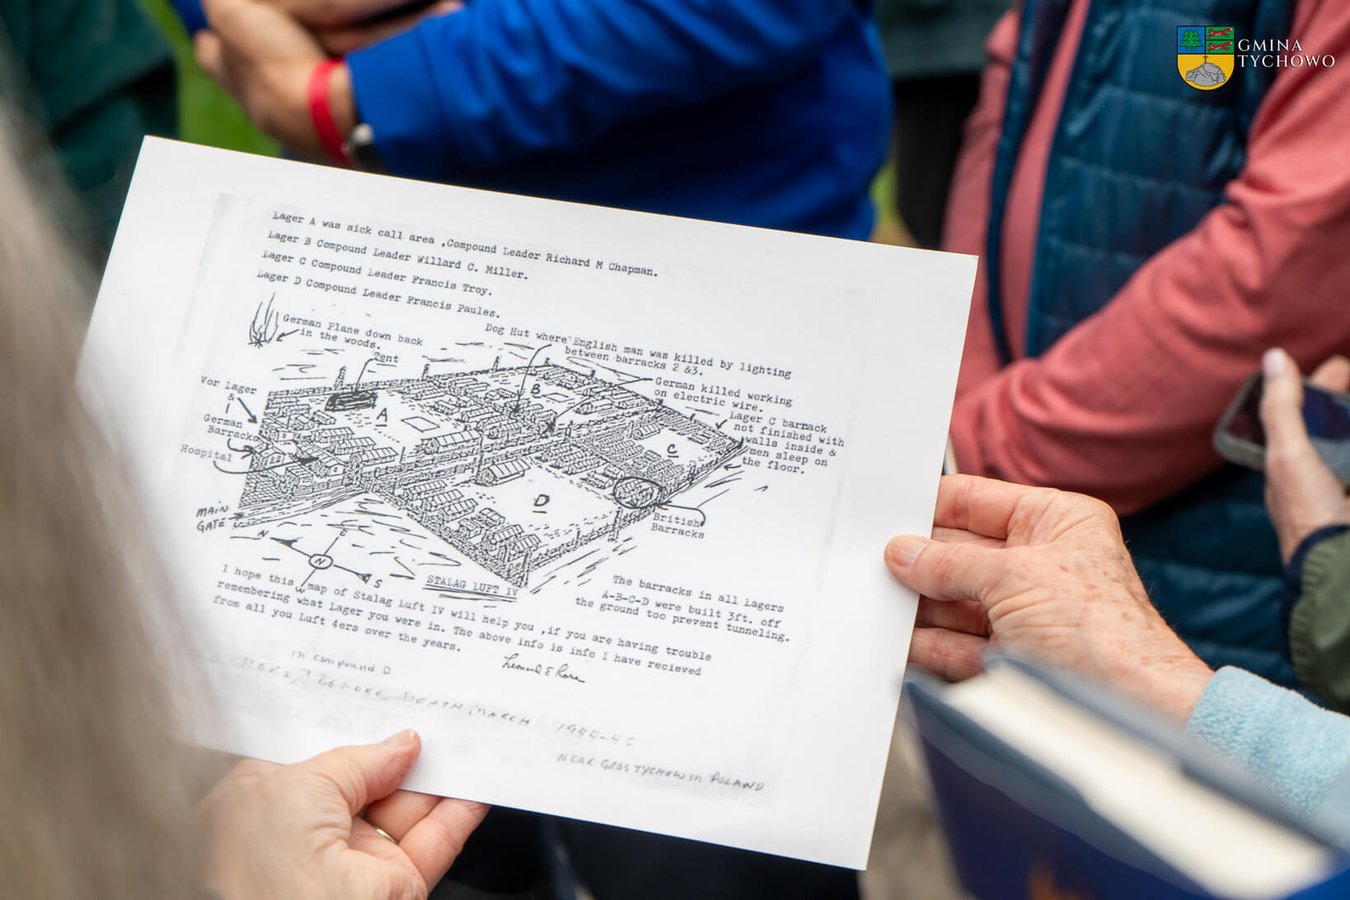 GMINA
TYCHOWO
Lager A was sick call area ,Compound Leader Richard M Chapman.
Lager B Compound Leader Willard C. Miller.
Lager C Compound Leader Francis Troy.
Lager D Compound Leader Francis Paules.
German Plane down back
in the woods.
Tent
Dog Hut where English man was killed by lighting
between barracks 2 &3.
German killed working
on electric wire.
Vor Lager
&
German
Barracks
Hospital
Lager C barrack
not finished with
walls inside &
men sleep on
the floor.
A
B
C
D
British
Barracks
MAIN
GATE
N
E
W
S
STALAG LUFT IV
The barracks in all Lagers
A-B-C-D were built 3ft. off
the ground too prevent tunneling.
I hope this map of Stalag Luft IV will help you ,if you are having trouble
remembering what Lager you were in. The above info is info I have recieved
from all you Luft 4ers over the years.
in compound D
BEFORE DEATH MARCH 1944-45
NEAR GROS TYCHOW in POLAND